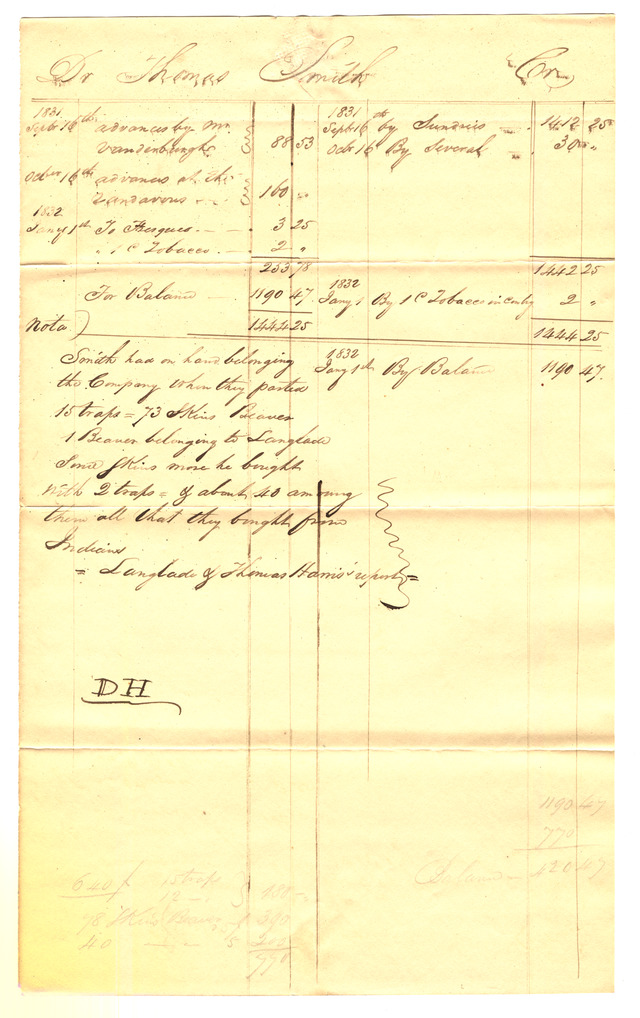 Dr Thomas Smith Cr
1831
Sept 16th advances by Mr
Vandenburghs 88 53
Octber 16th advances at the
Randavous 160 "
1832
Jany 1st To 3 25
" 1 C Tobacco 2 "
253 78
For Balance 1190 47
1444 25
1831
Sept 16th by Sundries 1412 25
Octr 16 By Several 30 "
1442 25
1832
Jany 1 By 1 C Tobacco in 2 "
1444 25
1832
Jany 1st By Balance 1190 47
Nota
Smith had on hand belonging
the Company when they parted
15 traps = 73 Skins Beaver
1 Beaver belonging to Langlade
Some Skins more he bought
with 2 traps = & about 40 among
them all that they bought from
Indians
= Langlade & Thomas Harris' report =
DH
1190 47
770
Balance 420 47
640 15 traps
12 180
78 Skins Beaver 390
40 5 200
770